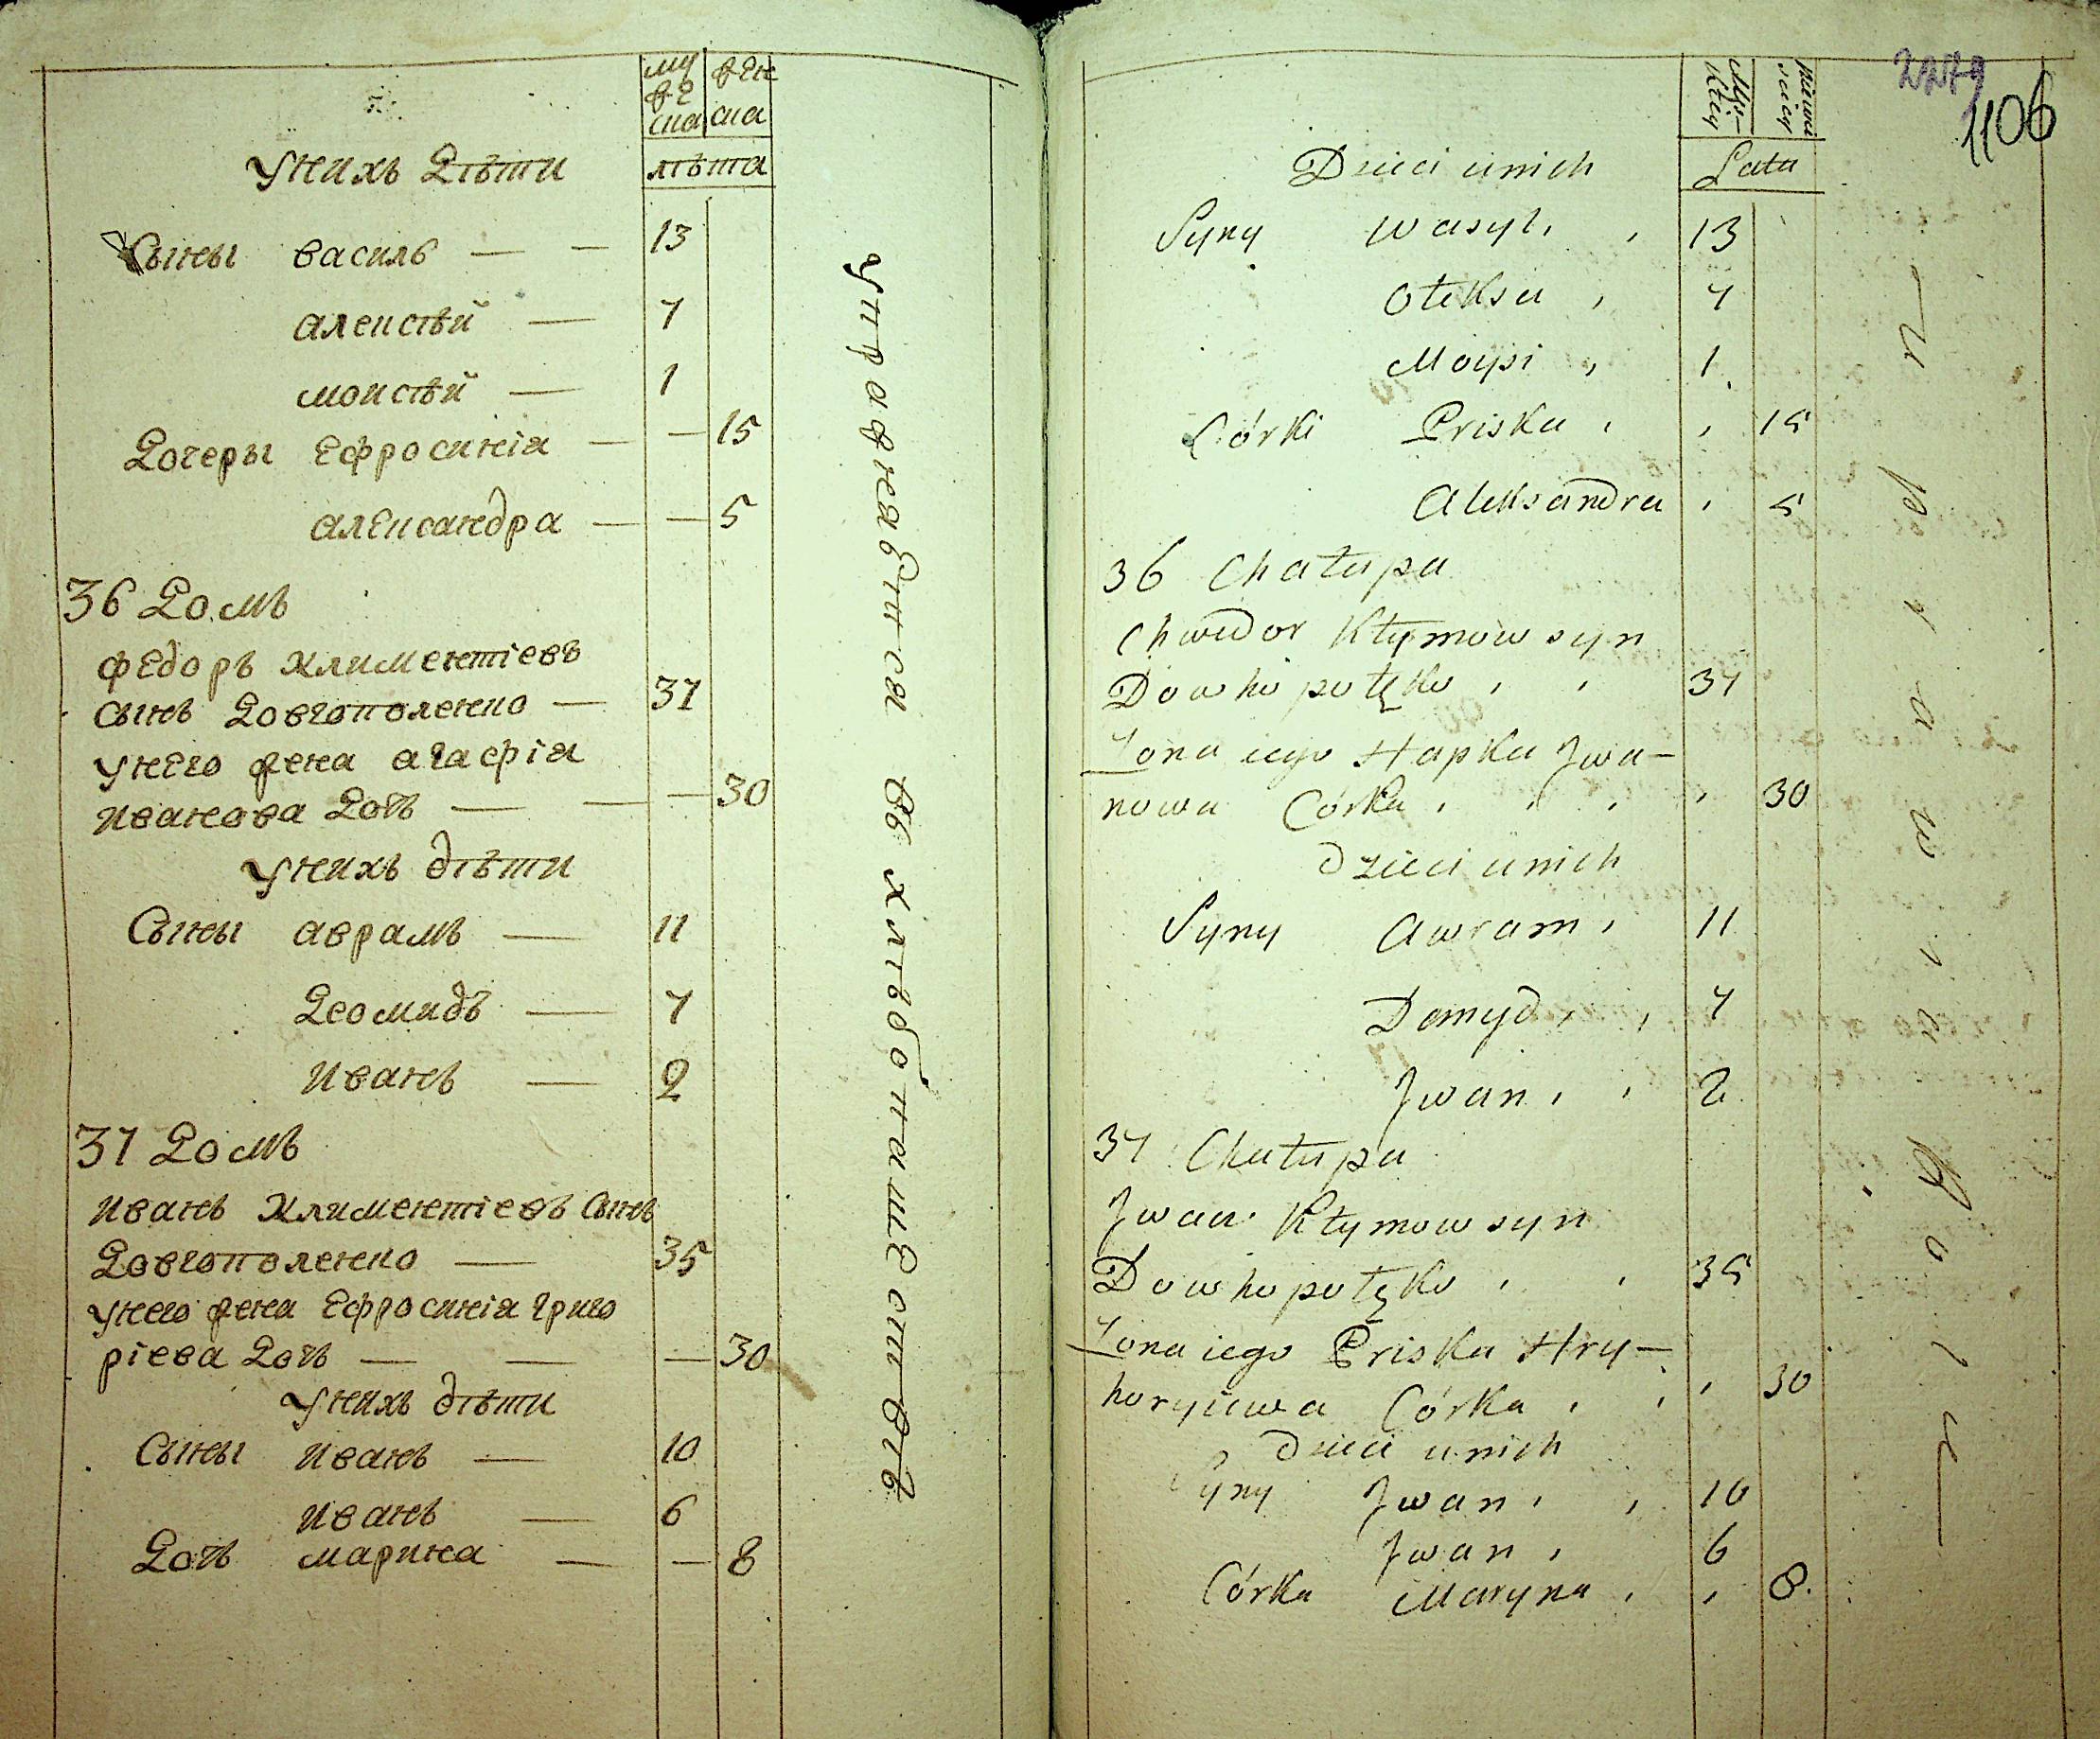 муже ска
жен ска
лѣта
У нихъ Дѣти
Сыны василь — — 13
алексѣй — 7
моисѣй — 1
Дочеры Ефросинія — — 15
александра — — 5
36 Домъ
федоръ Климентіевъ
сынъ Довгополенко — 37
У него жена агафія
иванова Дочь — — — 30
У нихъ дѣти
Сыны аврамъ — 11
Деомидъ — 7
иванъ — 2
37 Домъ
иванъ Климентіевъ сынъ
Довгополенко — 35
У него жена Ефросинія григо
ріева Дочь — — — 30
У нихъ дѣти
Сыны иванъ — 10
иванъ — 6
Дочь марина — — 8
упражняется въ хлѣбопашествѣ
2279
1106
Lata
Dzieci u nich
Syny Wasyl 13
Ołeksa 7
Moysi 1
Córki Priska 15
Aleksandra 5
36 Chałupa
Chwedor Kłymow syn
Dowhopołęko 37
Żona iego Hapka Jwa—
nowa Córka 30
dzieci u nich
Syny Awram 11
Demyd 7
Jwan 2
37 Chałupa
Jwan Kłymow syn
Dowhopołęko 35
Żona iego Priska Hry—
horyiewa Córka 30
dzieci u nich
Syny Jwan 10
Jwan 6
Córka Maryna 8